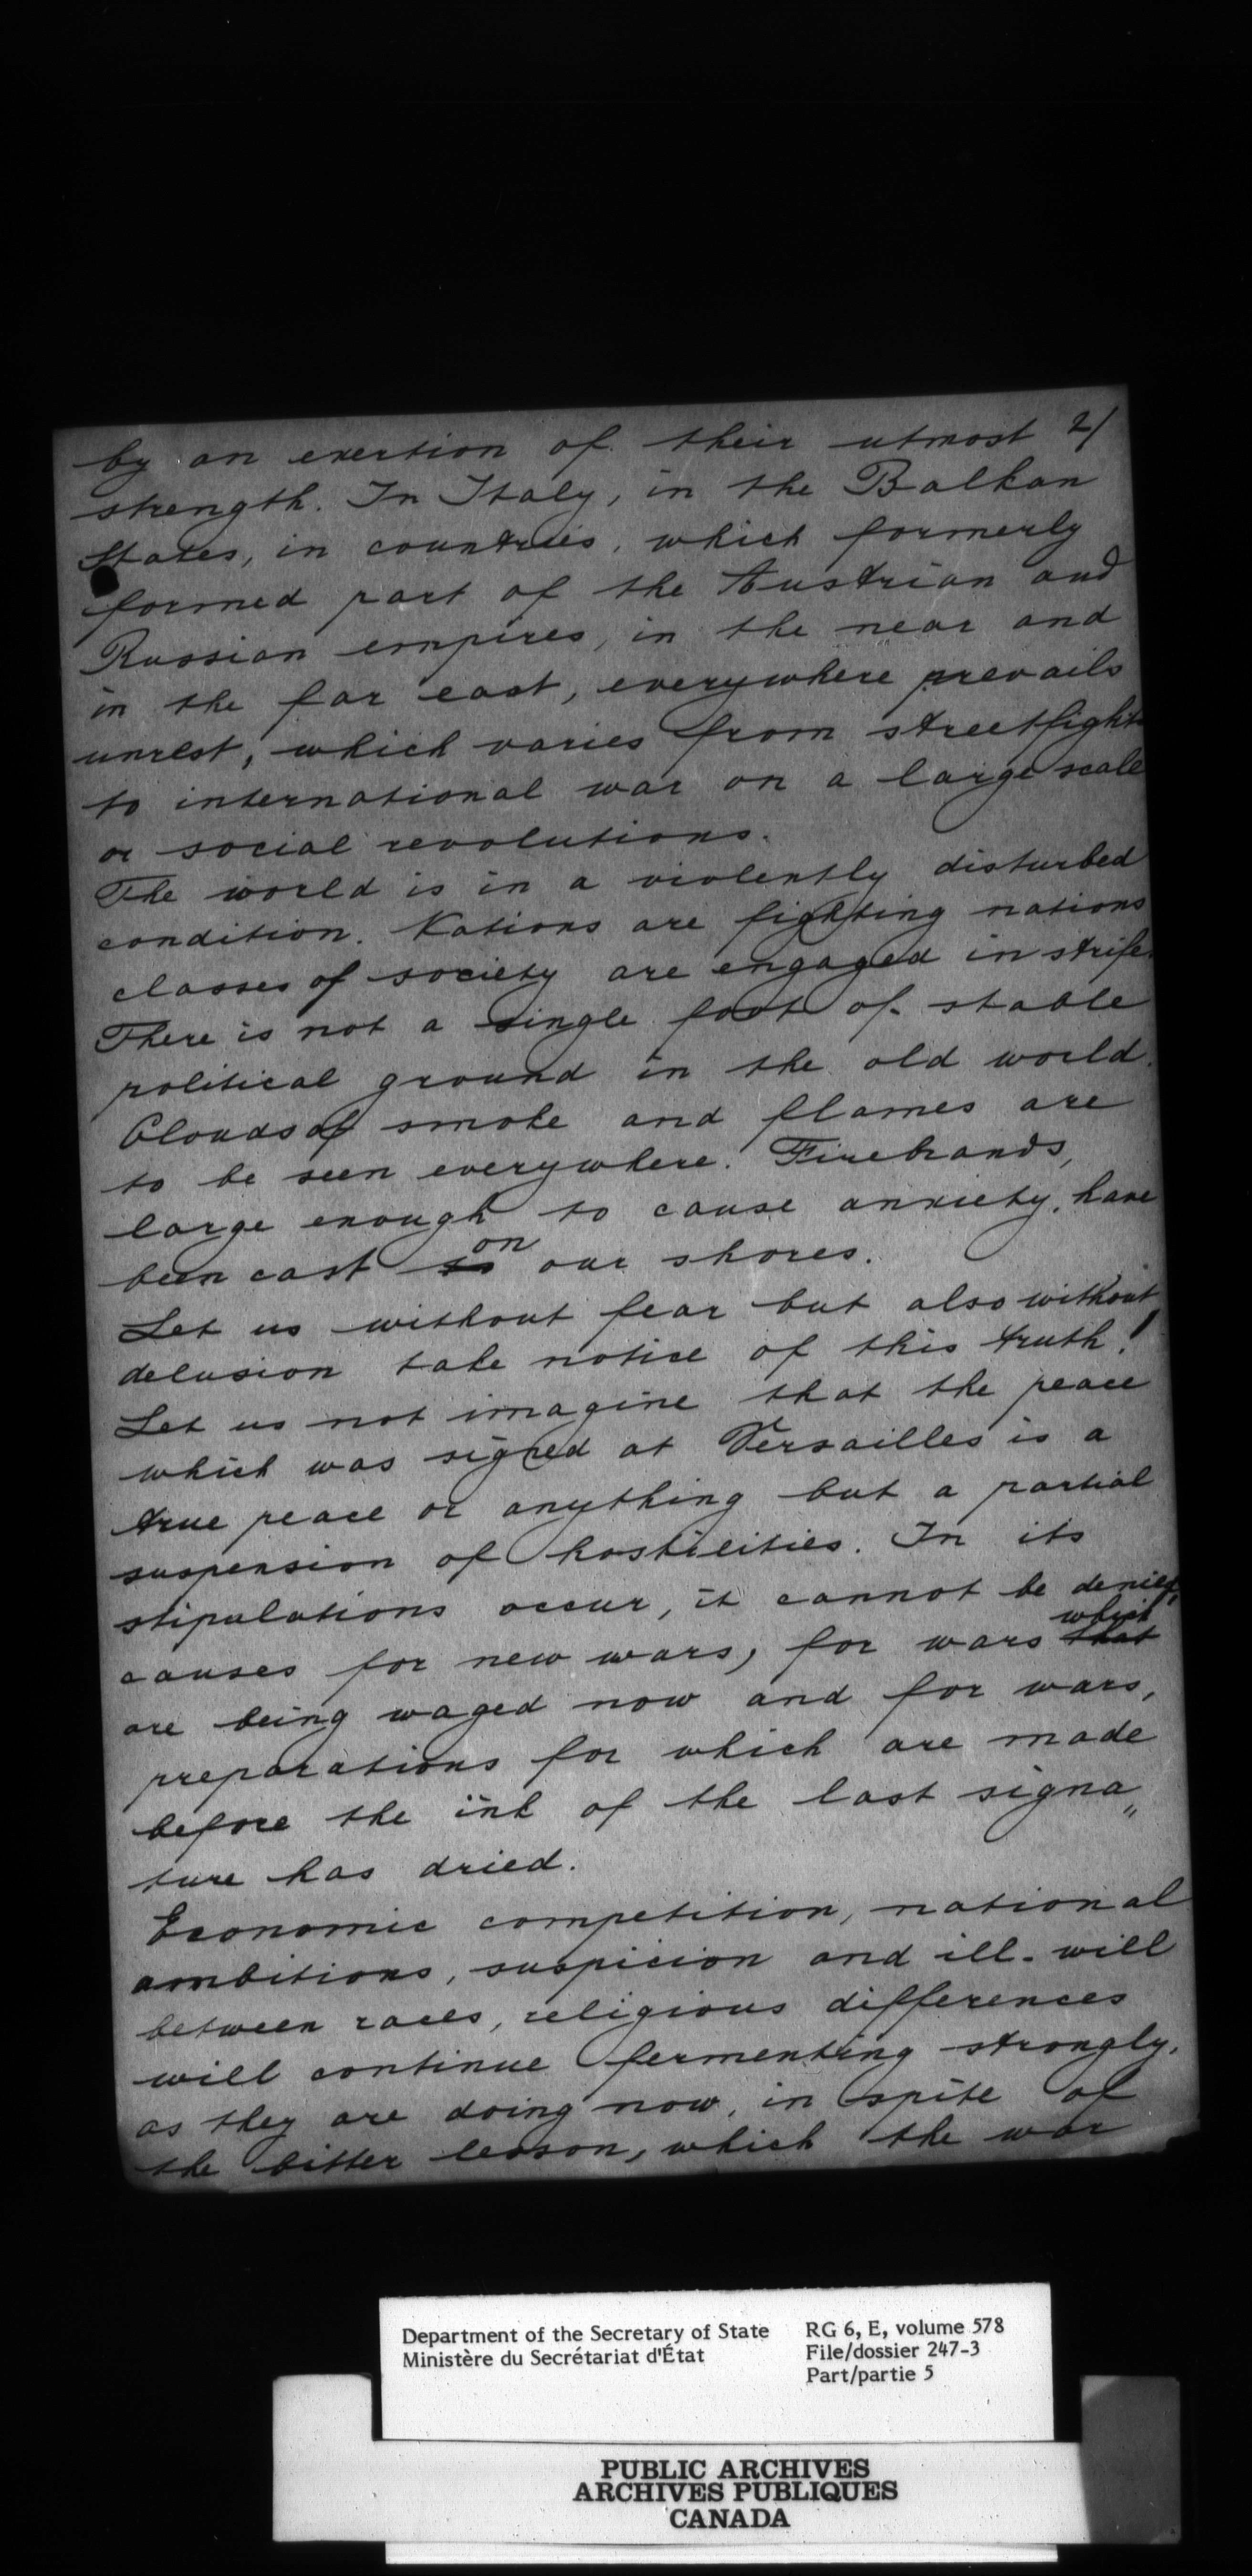 by an exertion of their utmost 2/
strength. In Italy, in the Balkan
States, in countries, which formerly
formed part of the Austrian and
Russian empires, in the near and
in the far east, everywhere prevails
unrest, which varies from streetfights
to international war on a large scale
or social revolutions.
The world is in a violently disturbed
condition. Nations are fighting nations
classes of society are engaged in strife.
There is not a single foot of stable
political ground in the old world.
Clouds of smoke and flames are
to be seen everywhere. Firebrands,
large enough to cause anxiety, have
been cast to on our shores.
Let us without fear but also without
delusion take notice of this truth!
Let us not imagine that the peace
which was signed at Versailles is a
true peace or anything but a partial
suspension of hostilities. In its
stipulations occur, it cannot be denied,
causes for new wars, for wars that which
are being waged now and for wars,
preparations for which are made
before the ink of the last signa„
ture has dried.
Economic competition, national
ambitions, suspicion and ill-will
between races, religious differences
will continue fermenting strongly,
as they are doing now, in spite of
the bitter lesson, which the war
Department of the Secretary of State
Ministère du Secrétariat d'État
RG 6, E, volume 578
File/dossier 247-3
Part/partie 5
PUBLIC ARCHIVES
ARCHIVES PUBLIQUES
CANADA